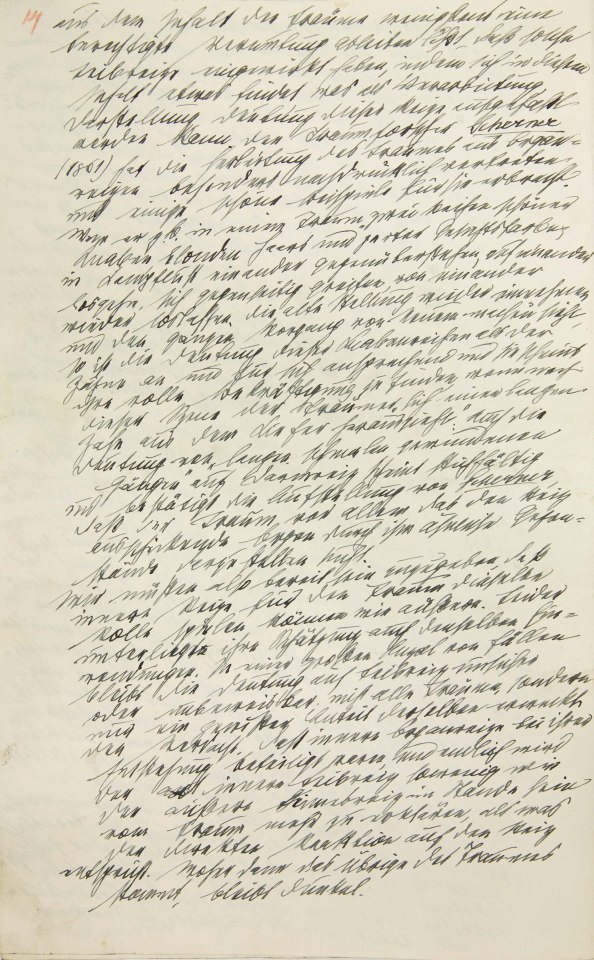 14
aus dem Inhalt der Träume wenigstens eine
berechtigte Vermutung ableiten läßt, daß solche
Leibreize eingewirkt haben, indem sich in diesem
Inhalt etwas findet was als Verarbeitung
Darstellung Deutung dieser Reize aufgefaßt
werden kann. Der Traumforscher Scherner
(1861) hat die Herleitung des Traumes aus Organ-
reizen besonders nachdrücklich vertreten
und einige schöne Beispiele für sie erbracht.
Wenn er z.b. in einem Traum „zwei Reihen schöner
Knaben blonden Haars und zarter Gesichtsfarbe
in Kampflust einander gegenüberstehen, auf einander
losgehn, sich gegenseitig greifen, von einander
wieder loslassen, die alte Stellung wieder einnehmen
und den ganzen Vorgang von neuem machen“ sieht,
so ist die Deutung dieser Knabenreihen als der
Zähne an und für sich ansprechend und sie scheint
ihre volle Bekräftigung zu finden, wenn nach
dieser Szene der Träumer „sich einen langen
Zahn aus dem Kiefer herauszieht“. Auch die
Deutung von „langen, schmalen gewundenen
Gängen“ auf Darmreiz scheint stichhältig
und bestätigt die Aufstellung von Scherner,
daß der Traum vor allem das den Reiz
ausschickende Organ durch ihm ähnliche Gegen-
stände darzustellen sucht.
Wir müssen also bereit sein zuzugeben daß
innere Reize für den Traum dieselbe
Rolle spielen können wie äußere. Leider
unterliegt ihre Schätzung auch denselben Ein-
wendungen. In einer großen Anzal von Fällen
bleibt die Deutung auf Leibreiz unsicher
oder unbeweisbar, nicht alle Träume, sondern
nur ein gewisser Anteil derselben erweckt
den Verdacht, daß innere Organreize bei ihrer
Entstehung beteiligt waren, und endlich wird
der innere Leibreiz sowenig wie
der äußere Sinnesreiz im Stande sein
vom Traum mehr zu erklären, als was
der direkten Reaktion auf den Reiz
entspricht. Woher dann das Übrige des Traumes
kommt, bleibt dunkel.